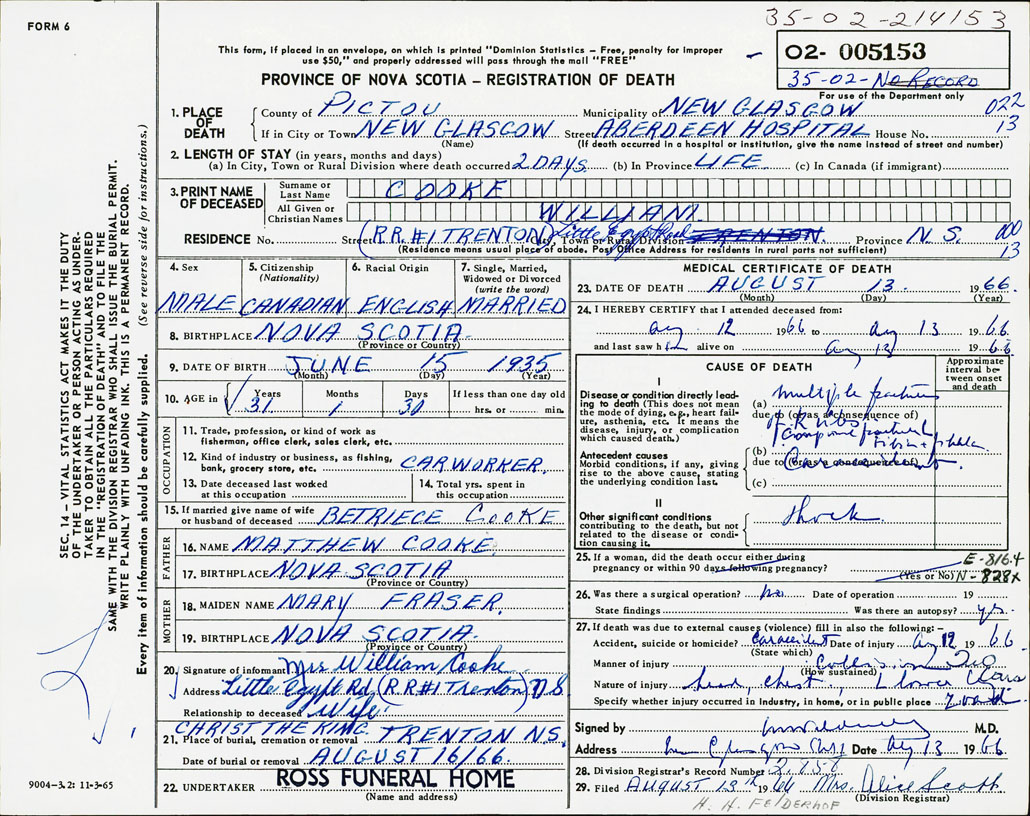 35-02-214153
FORM 6
This form, if placed in an envelope, on which is printed "Dominion Statistics – Free, penalty for improper
use $50," and properly addressed will pass through the mail "FREE"
02- 005153
35-02-NO RECORD
For use of the Department only
PROVINCE OF NOVA SCOTIA – REGISTRATION OF DEATH
1. PLACE OF DEATH
County of PICTOU Municipality of NEW GLASGOW 022
If in City or Town NEW GLASGOW Street ABERDEEN HOSPITAL House No. 13
(Name) (If death occurred in a hospital or institution, give the name instead of street and number)
2. LENGTH OF STAY (in years, months and days)
(a) In City, Town or Rural Division where death occurred 2 DAYS (b) In Province LIFE (c) In Canada (if immigrant)
3. PRINT NAME OF DECEASED
Surname or Last Name COOKE
All Given or Christian Names WILLIAM
RESIDENCE No. Street (R.R.#1 TRENTON) Little Egypt Road City, Town or Rural Division TRENTON. Province N S. 000
(Residence means usual place of abode. Post Office Address for residents in rural parts not sufficient) 13
4. Sex MALE
5. Citizenship (Nationality) CANADIAN
6. Racial Origin ENGLISH
7. Single, Married, Widowed or Divorced (write the word) MARRIED
8. BIRTHPLACE NOVA SCOTIA
(Province or Country)
9. DATE OF BIRTH JUNE 15 1935
(Month) (Day) (Year)
10. AGE in Years 31 Months 1 Days 30 If less than one day old hrs. or min.
OCCUPATION
11. Trade, profession, or kind of work as fisherman, office clerk, sales clerk, etc.
12. Kind of industry or business, as fishing, bank, grocery store, etc. CAR WORKER.
13. Date deceased last worked at this occupation
14. Total yrs. spent in this occupation
15. If married give name of wife or husband of deceased BETRIECE COOKE
FATHER
16. NAME MATTHEW COOKE
17. BIRTHPLACE NOVA SCOTIA
(Province or Country)
MOTHER
18. MAIDEN NAME MARY FRASER.
19. BIRTHPLACE NOVA SCOTIA.
(Province or Country)
20. Signature of informant Mrs William Cooke
Address Little Egypt Rd (R R #1 Trenton) N.S
Relationship to deceased Wife
CHRIST THE KING
21. Place of burial, cremation or removal TRENTON N.S.
Date of burial or removal AUGUST 16/66.
22. UNDERTAKER ROSS FUNERAL HOME
(Name and address)
MEDICAL CERTIFICATE OF DEATH
23. DATE OF DEATH AUGUST 13. 1966.
(Month) (Day) (Year)
24. I HEREBY CERTIFY that I attended deceased from:
Aug 12 1966 to Aug 13 1966
and last saw him alive on Aug 13 1966
CAUSE OF DEATH
Approximate interval between onset and death
I
Disease or condition directly leading to death (This does not mean the mode of dying, e.g., heart failure, asthenia, etc. It means the disease, injury, or complication which caused death.)
(a) multiple fractures
due to (or as a consequence of)
Ribs
Antecedent causes
Morbid conditions, if any, giving rise to the above cause, stating the underlying condition last.
(b) Compound fracture
due to (or as a consequence of) Car accident.
(c)
II
Other significant conditions contributing to the death, but not related to the disease or condition causing it.
Shock.
25. If a woman, did the death occur either during pregnancy or within 90 days following pregnancy? (Yes or No)
E-816.4
N-828X
26. Was there a surgical operation? No Date of operation 19
State findings Was there an autopsy? yes.
27. If death was due to external causes (violence) fill in also the following:–
Accident, suicide or homicide? Car accident Date of injury Aug 12 1966
(State which)
Manner of injury Collision
(How sustained)
Nature of injury head, chest, lower
Specify whether injury occurred in industry, in home, or in public place
Signed by M.D.
Address New Glasgow Date Aug 13 1966
28. Division Registrar's Record Number
29. Filed AUGUST 13th 1966 Mrs. Alice Scott
(Division Registrar)
H. H. FELDERHOF
SEC. 14 – VITAL STATISTICS ACT MAKES IT THE DUTY
OF THE UNDERTAKER OR PERSON ACTING AS UNDER-
TAKER TO OBTAIN ALL THE PARTICULARS REQUIRED
IN THE "REGISTRATION OF DEATH" AND TO FILE THE
SAME WITH THE DIVISION REGISTRAR WHO SHALL ISSUE THE BURIAL PERMIT.
WRITE PLAINLY WITH UNFADING INK. THIS IS A PERMANENT RECORD.
Every item of information should be carefully supplied. (See reverse side for instructions.)
9004-3.2: 11-3-65